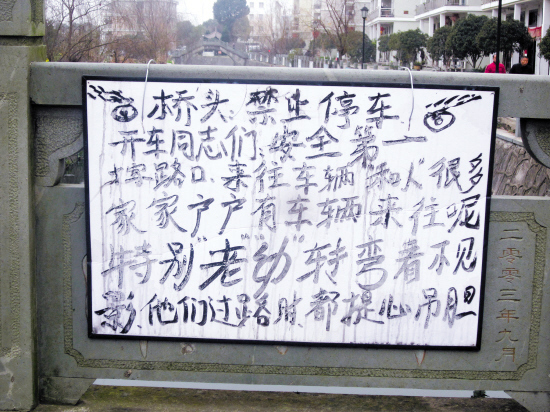 桥头禁止停车
开车同志们:安全第一
路口、来往车辆"和人"很多
家家户户有车辆来往呢
特别"老""幼"转弯着不见
影、他们过路时、都提心吊胆
二〇〇三年九月